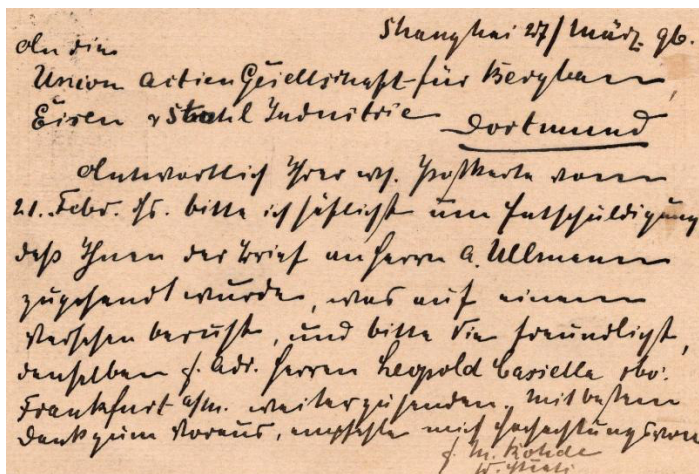 Shanghai 27/März 96.
An die
Union Actien Gesellschaft für Bergbau,
Eisen & Stahl Industrie
Dortmund
Antwortlich Ihrer w. Postkarte vom
21. Febr. ds. bitte ich höflichst um Entschuldigung
daß Ihnen der Brief an Herrn A. Ullmann
zugesandt wurde, was auf einem
Versehen beruht, und bitte Sie freundlichst,
denselben p. Adr. Herren Leopold Casella &Co.
Frankfurt a/m. weiterzusenden. Mit bestem
Dank zum Voraus, empfehle mich hochachtungsvoll
p. M. Rohde